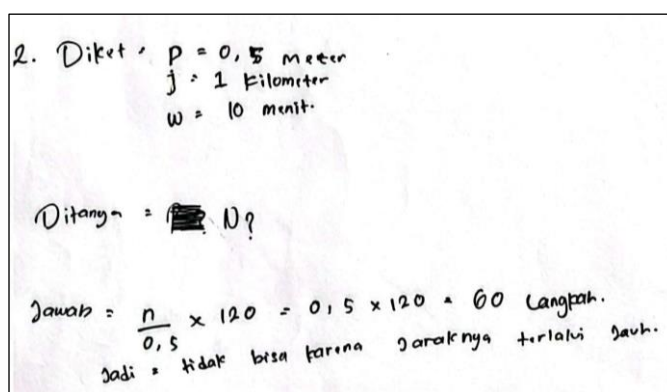 2. Diket : P = 0,5 meter
j = 1 kilometer
w = 10 menit.
Ditanya = N?
Jawab = n/0,5 × 120 = 0,5 × 120 = 60 Langkah.
Jadi = tidak bisa karena Jaraknya terlalu Jauh.